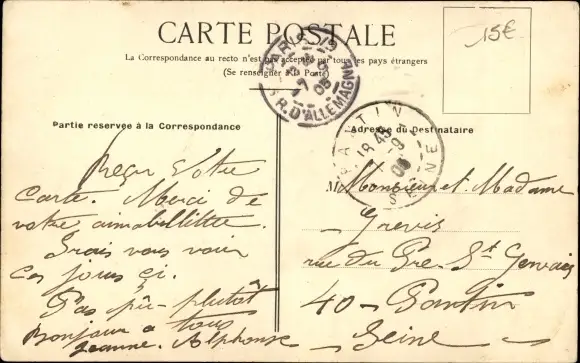 CARTE POSTALE
15€
La Correspondance au recto n'est pas acceptée par tous les pays étrangers
(Se renseigner à la Poste)
PARIS 19
7 05
R. D'ALLEMAGNE
PANTIN
18 45
9
05
SEINE
Partie reservée à la Correspondance
Adresse du Destinataire
Reçu votre
carte. Merci de
votre aimabillitee.
Irais vous voir
ces jours çi.
Pas pû plutôt
Bonjour a tous
Jeanne. Alphonse
M
Monsieur et Madame
Grevis
rue du Pre-St Gervais
40 - Pantin
Seine